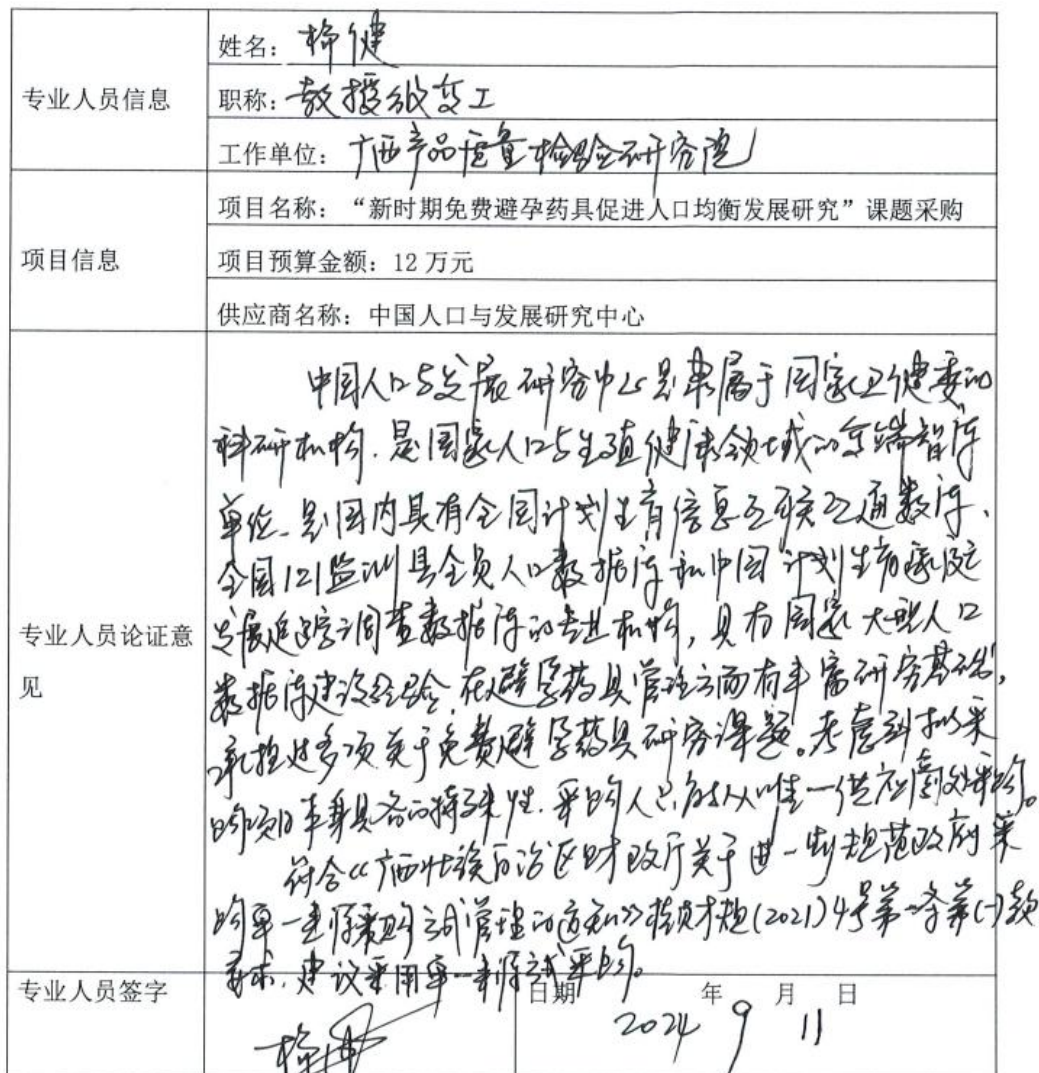 专业人员信息
姓名：健
职称：教授级高工
工作单位：广西产品质量检验研究院
项目信息
项目名称：“新时期免费避孕药具促进人口均衡发展研究”课题采购
项目预算金额：12万元
供应商名称：中国人口与发展研究中心
专业人员论证意见
中国人口与发展研究中心是隶属于国家卫健委的
科研机构.是国家人口与生殖健康领域的高端智库
单位.是国内具有全国计划生育信息互联互通数库、
全国121监测县全员人口数据库和中国计划生育家庭
发展追踪调查数据库的机构，具有国家大型人口
数据库建设经验.在避孕药具管理方面有丰富研究基础，
承担过多项关于免费避孕药具研究课题。考虑到拟采
购项目本身具备的特殊性.采购人只能从唯一供应商处采购。
符合《广西壮族自治区财政厅关于进一步规范政府采
购单一来源采购方式管理的通知》桂财规(2021)4号第一条第(一)款
要求.建议采用单一来源方式采购。
专业人员签字
日期 2024年9月11日